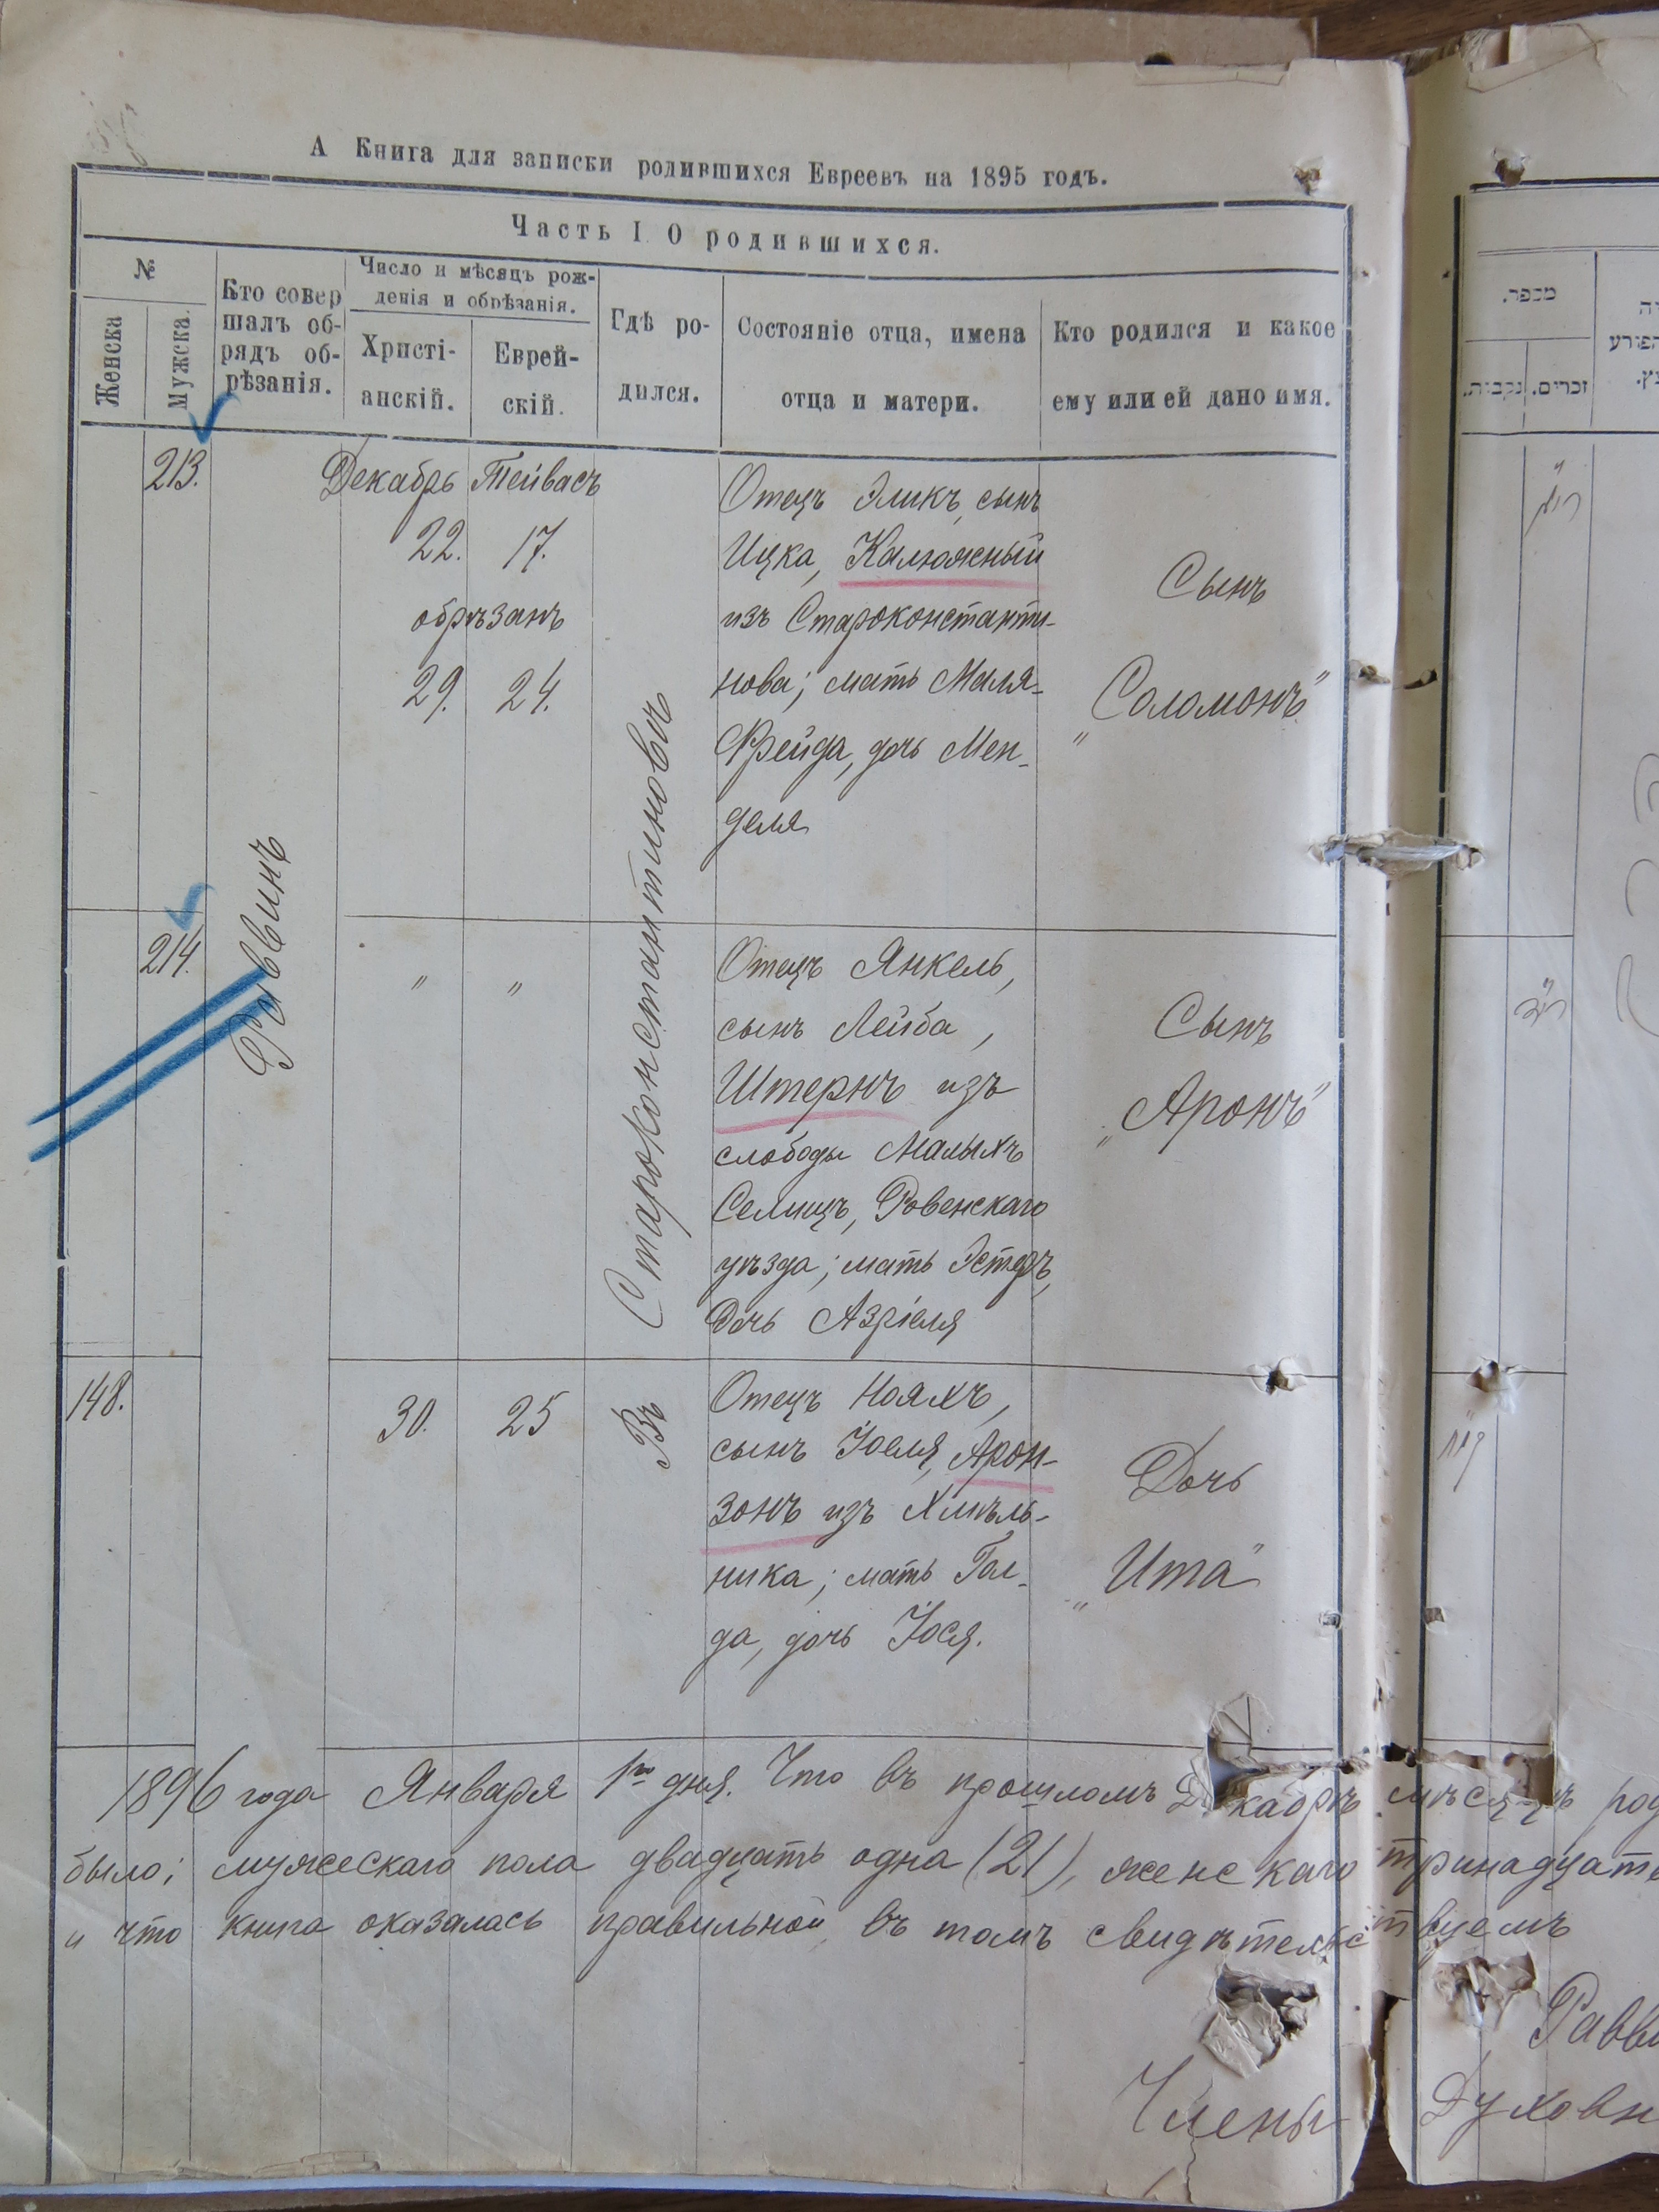 А Книга для записки родившихся Евреевъ на 1895 годъ.
Часть I О родившихся.
№
Женска
Мужска.
Кто совер
шалъ об-
рядъ об-
рѣзанія.
Число и мѣсяцъ рож-
денія и обрѣзанія.
Христі-
анскій.
Еврей-
скій.
Гдѣ ро-
дился.
Состояніе отца, имена
отца и матери.
Кто родился и какое
ему или ей дано имя.
213.
Раввинъ
Декабрь Тейвасъ
22. 17.
обрѣзанъ
29. 24.
Въ Староконстантиновѣ
Отецъ Эликъ, сынъ
Ицка, Калюжный
изъ Староконстанти-
нова; мать Маля-
Фрейда, дочь Мен-
деля
Сынъ
„Соломонъ"
214.
" "
Отецъ Янкель,
сынъ Лейба,
Штернъ изъ
слободы Малыхъ
Селищъ, Ровенскаго
уѣзда; мать Эстеръ,
дочь Азріеля
Сынъ
„Аронъ"
148.
30. 25
Отецъ Ноахъ,
сынъ Іоеля, Арон-
зонъ изъ Хмѣль-
ника; мать Гол-
да, дочь Іося.
Дочь
„Ита"
1896 года Января 1го дня. Что въ прошломъ Декабрѣ мѣсяцѣ род
было: мужескаго пола двадцать одна (21), женскаго тринадцать
и что книга оказалась правильной, въ томъ свидѣтельствуемъ
Равви
Члены Духовн
מספר.
זכרים.
נקבות.